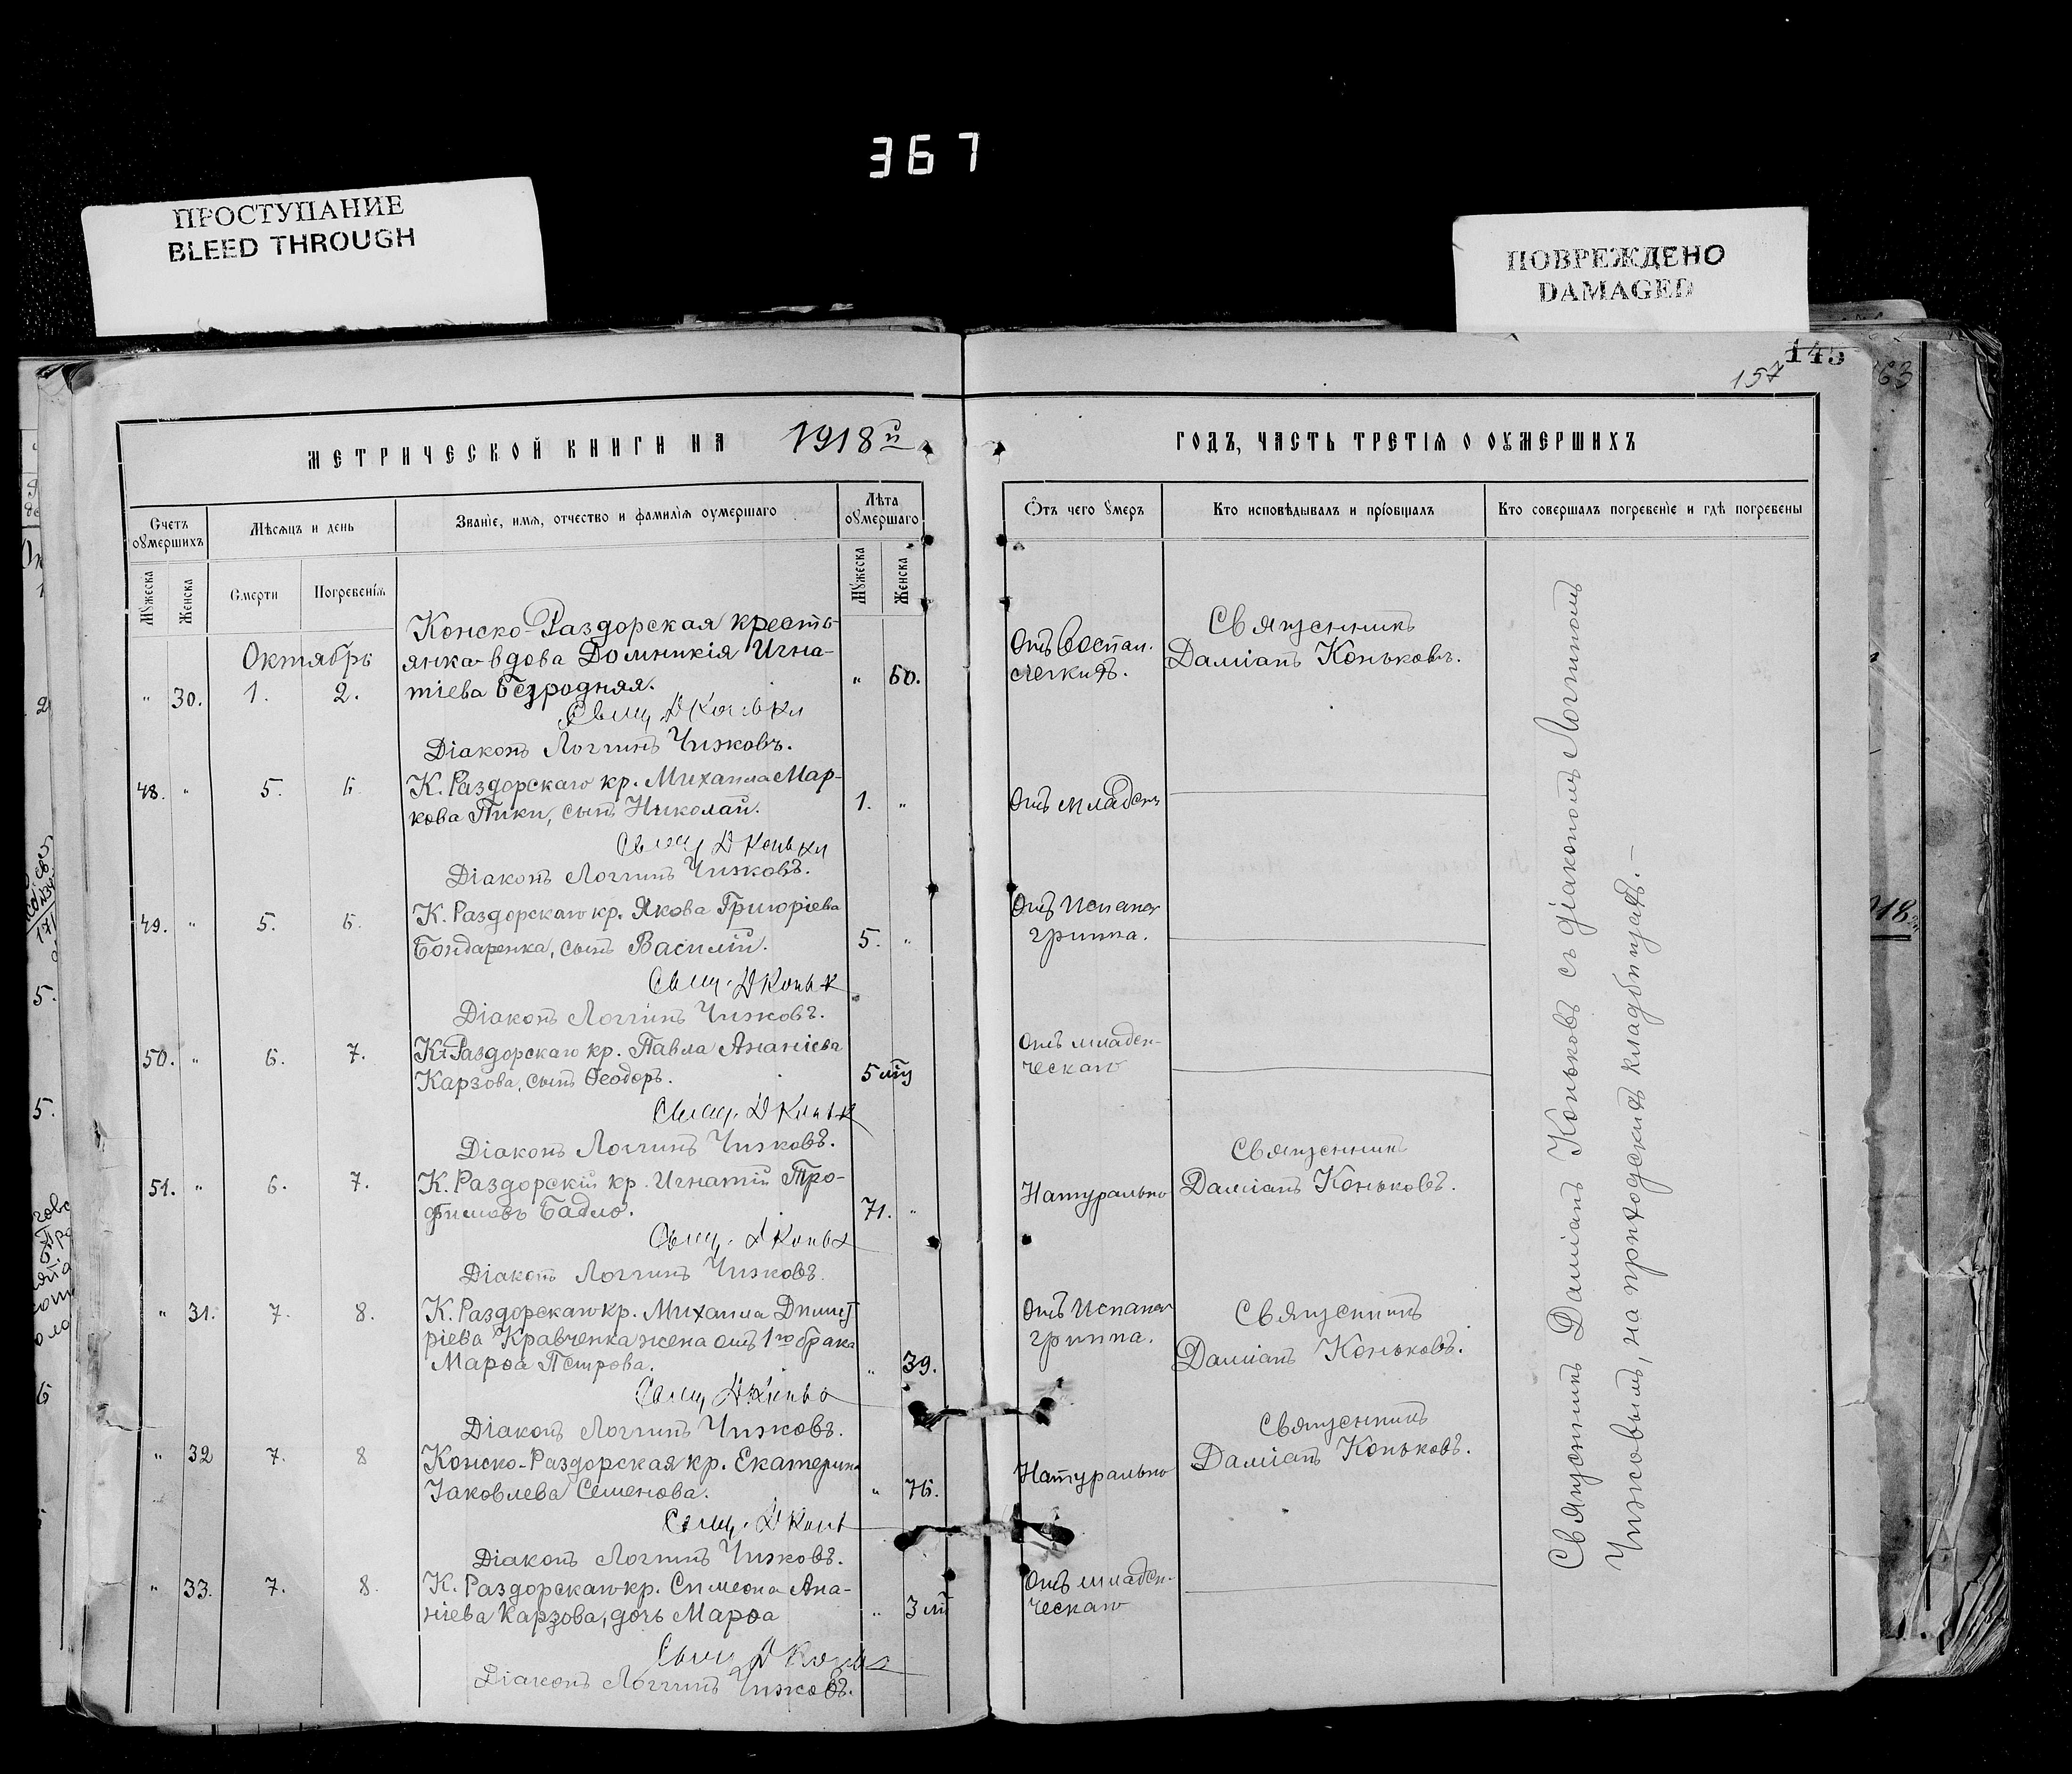 367
ПРОСТУПАНИЕ
BLEED THROUGH
ПОВРЕЖДЕНО
DAMAGED
145
157
63
МЕТРИЧЕСКОЙ КНИГИ НА 1918й
ГОДЪ, ЧАСТЬ ТРЕТІЯ О ОУМЕРШИХЪ
Счетъ оумершихъ
Мѣсяцъ и день
Званіе, имя, отчество и фамилія оумершаго
Лѣта оумершаго
Отъ чего умеръ
Кто исповѣдывалъ и пріобщалъ
Кто совершалъ погребеніе и гдѣ погребены
Мужеска
Женска
Смерти
Погребенія
Мужеска
Женска
Октябрь
" 30. 1. 2.
Конско-Раздорская кресть-
янка вдова Домникія Игна-
тіева Безродняя.
" 60.
Отъ воспал.
легкихъ.
Священникъ
Даміанъ Коньковъ.
Свящ. Д Коньк
Діаконъ Логгинъ Чижовъ.
48. " 5. 6
К. Раздорскаго кр. Михаила Мар-
кова Пики, сынъ Николай.
1. "
Отъ младен
Свящ Д Коньк
Діаконъ Логгинъ Чижовъ.
49. " 5. 6.
К. Раздорскаго кр. Якова Григоріева
Бондаренка, сынъ Василій.
5. "
Отъ Испанск
гриппа.
Свящ. Д Коньк
Діаконъ Логгинъ Чижовъ.
50. " 6. 7.
К. Раздорскаго кр. Павла Ананіева
Карзова, сынъ Ѳеодоръ.
5 мц
Отъ младен-
ческаго
Свящ. Д Коньк
Діаконъ Логгинъ Чижовъ.
51. " 6. 7.
К. Раздорскій кр. Игнатій Тро-
фимовъ Бадло.
71. "
Натурально
Священникъ
Даміанъ Коньковъ.
Свящ. Д Коньк
Діаконъ Логгинъ Чижовъ.
" 31. 7. 8.
К. Раздорскаго кр. Михаила Дмит
ріева Кравченка жена отъ 1го брака
Марѳа Петрова.
" 39.
Отъ Испанск
гриппа.
Священникъ
Даміанъ Коньковъ.
Свящ Д Коньк
Діаконъ Логгинъ Чижовъ.
" 32 7. 8
Конско-Раздорская кр. Екатерина
Іаковлева Семенова.
" 76.
Натурально
Священникъ
Даміанъ Коньковъ.
Свящ. Д Коньк
Діаконъ Логгинъ Чижовъ.
" 33. 7. 8.
К. Раздорскаго кр. Симеона Ана-
ніева Карзова, дочь Марѳа
" 3 м
Отъ младен-
ческаго
Свящ Д Коньк
Діаконъ Логгинъ Чижовъ.
Священникъ Даміанъ Коньковъ съ діакономъ Логгиномъ
Чижовымъ, на приходскихъ кладбищахъ.—